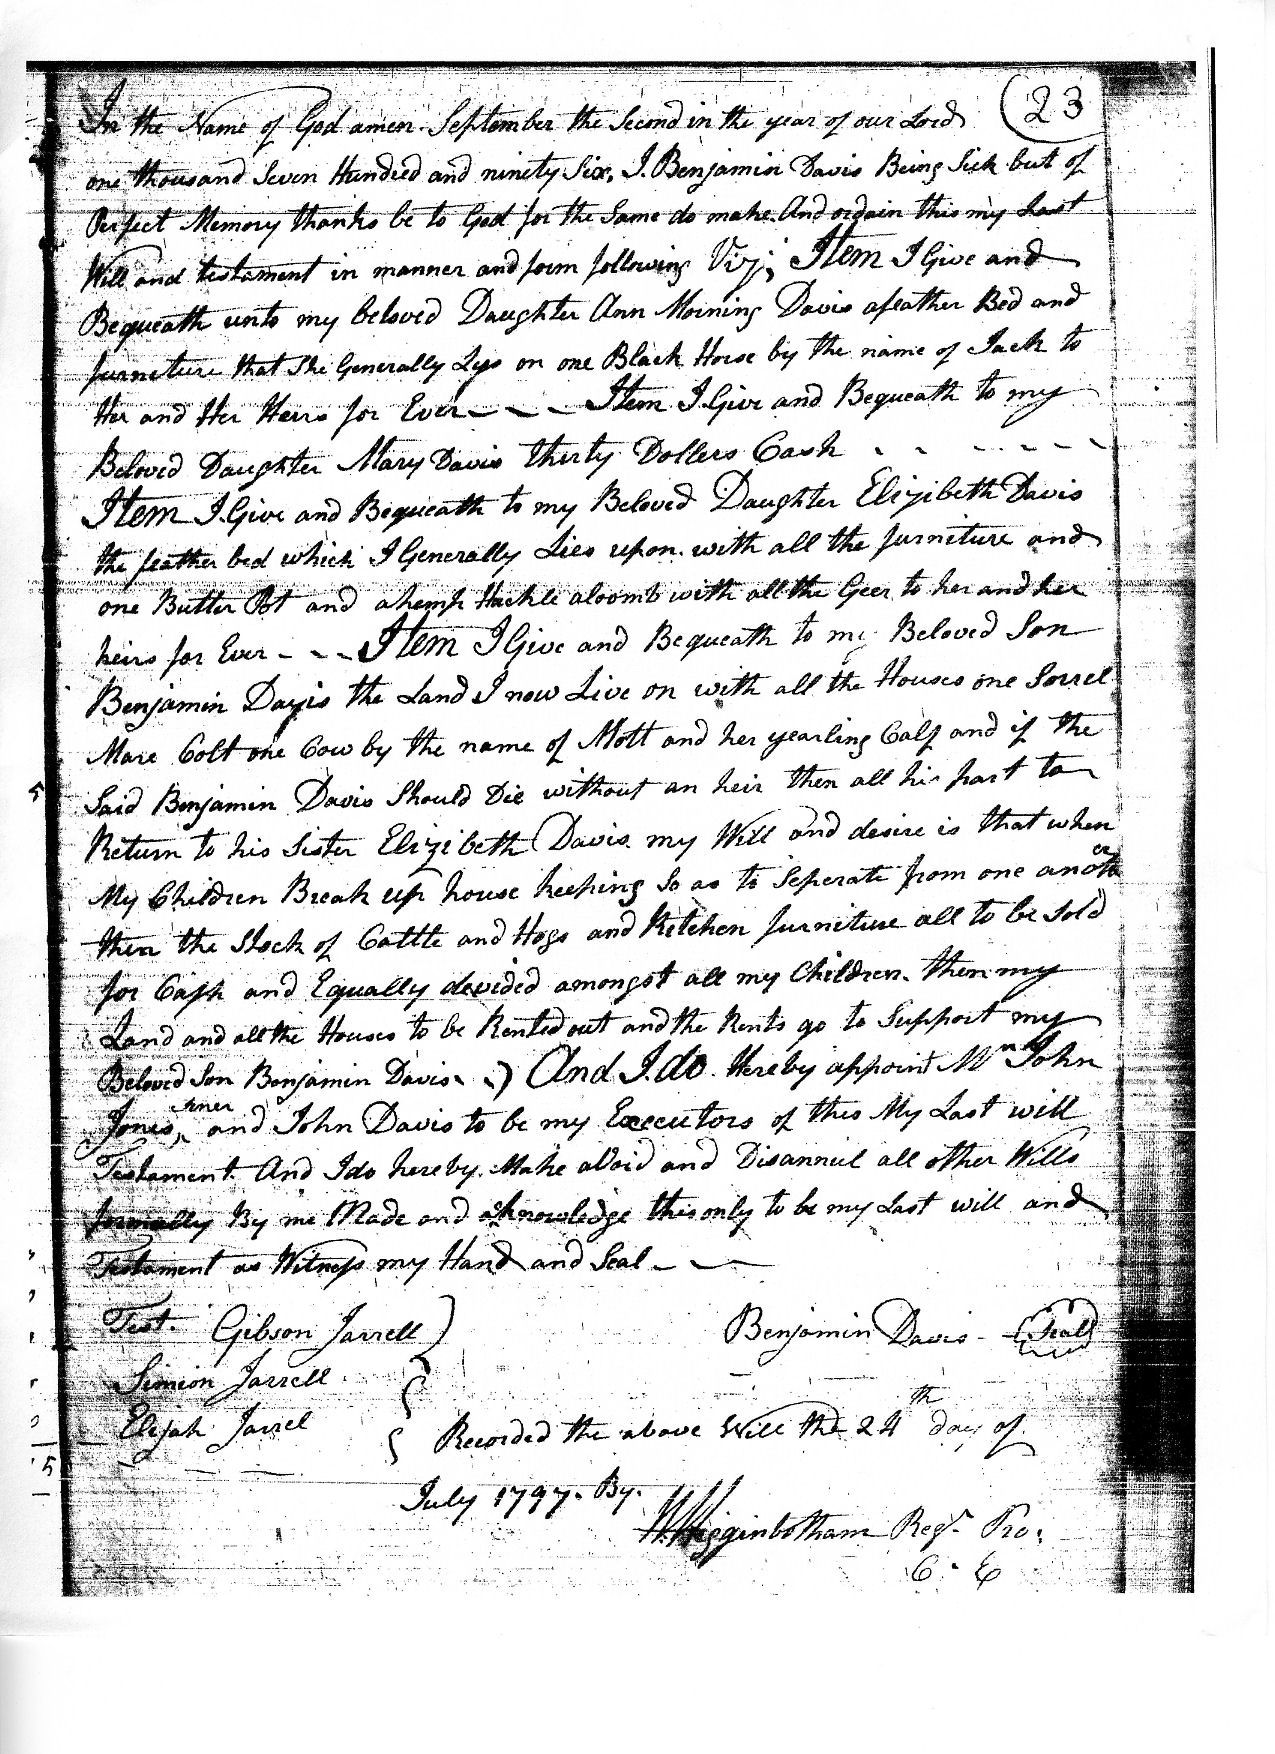 23
In the Name of God amen. September the Second in the year of our Lord
one thousand Seven Hundred and ninety Six, I. Benjamin Davis Being Sick but of
Perfect Memory thanks be to God for the Same do make. And ordain this my Last
Will and testament in manner and form following Viz; Item I Give and
Bequeath unto my beloved Daughter Ann Morning Davis a feather Bed and
furneture that She Generally Lys on one Black Horse by the name of Jack to
Her and Her Heirs for Ever - - - Item I Give and Bequeath to my
Beloved Daughter Mary Davis thirty Dollers Cash - - - - - -
Item I Give and Bequeath to my Beloved Daughter Elizibeth Davis
the feather bed which I Generally Lies upon. with all the furniture and
one Butter Pot and a hemp Hackle a loomb with all the Geer to her and her
heirs for Ever - - - Item I Give and Bequeath to my Beloved Son
Benjamin Davis the Land I now Live on with all the Houses one Sorrel
Mare Colt one Cow by the name of Mott and her yearling Calf and if the
Said Benjamin Davis Should Die without an heir then all his part to
Return to his Sister Elizibeth Davis my Will and desire is that when
My Children Break up house keeping So as to Seperate from one another
then the Stock of Cattle and Hogs and Kitchen furniture all to be Sold
for Cash and Equally devided amongst all my Children. then my
Land and all the Houses to be Rented out and the Rents go to Support my
Beloved Son Benjamin Davis And I. do. Hereby appoint Mr John
Jones, and John Davis to be my Executors of this My Last will
Testament. And I do hereby. Make a Void and Disannul all other Wills
formally By me Made and acknowledge this only to be my Last will and
Testament as Witness my Hand and Seal - - -
Test. Gibson Jarrell Benjamin Davis - (Seal)
Simion Jarrell
Elijah Jarrel Recorded the above Will the 24th day of
July 1797. By.
W. Higginbotham Regr. Pro.
C. E